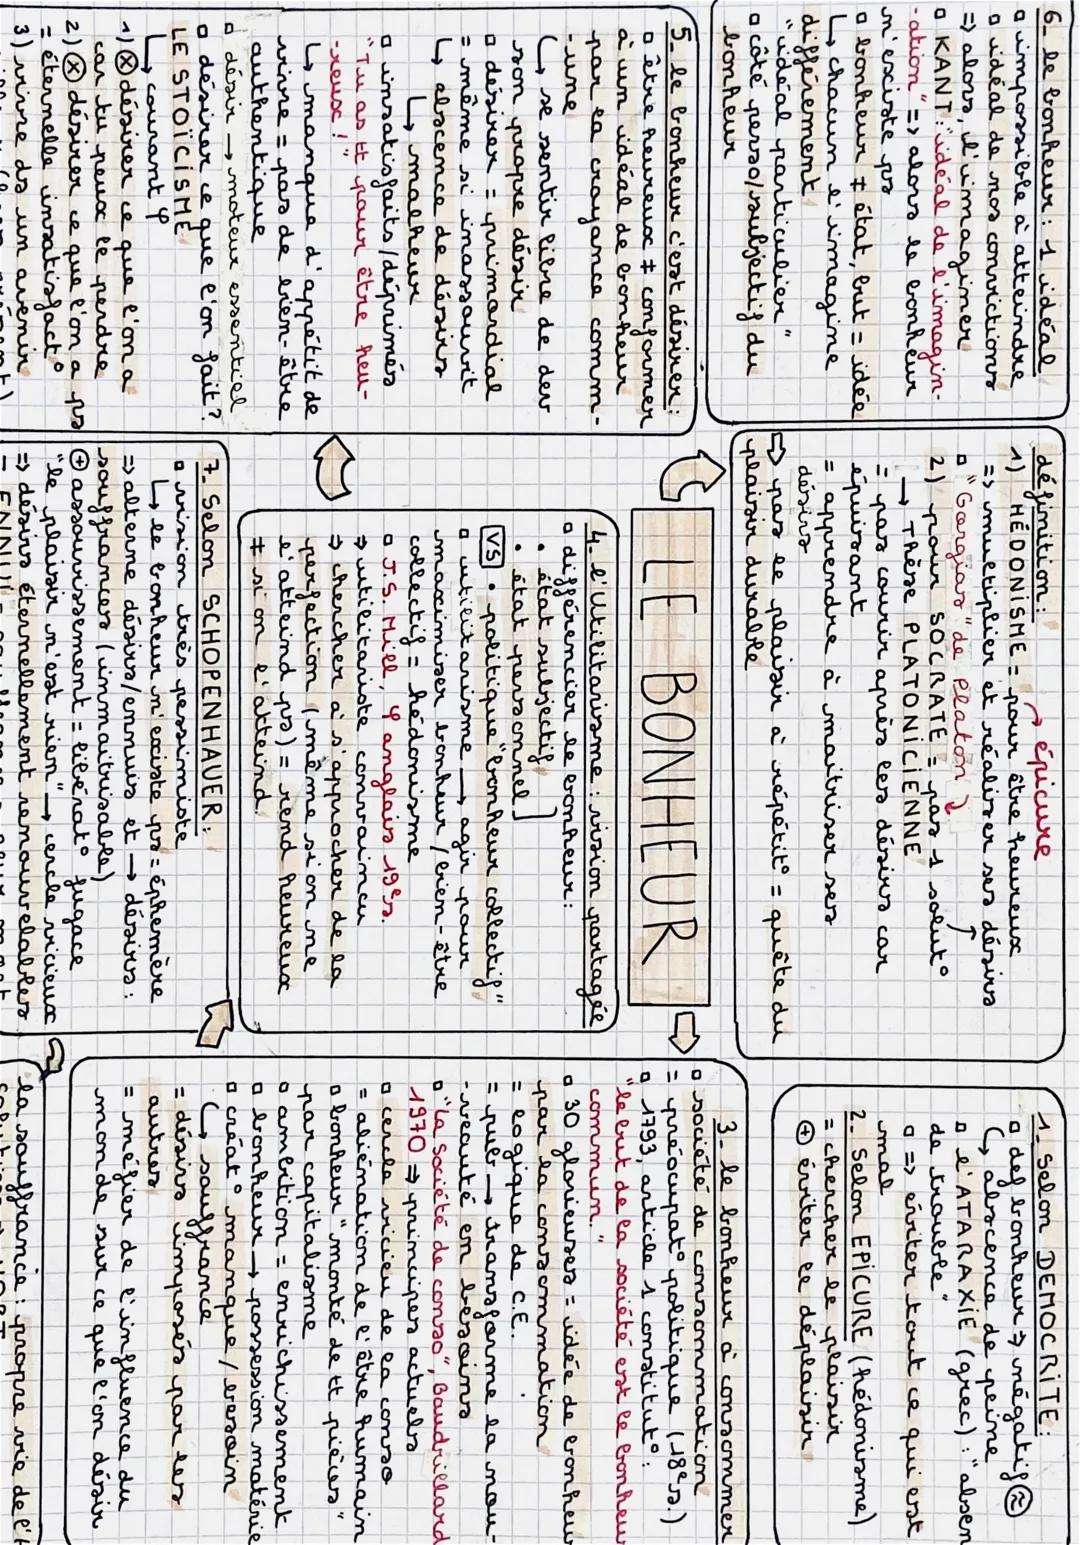 LE BONHEUR
définition :
→ épicure
1) HÉDONISME = pour être heureux
=> multiplier et réaliser ses désirs
▫ "Gorgias" de Platon
2) pour SOCRATE = pas 1 solut°
→ THÈSE PLATONICIENNE
= pas courir après les désirs car
épuisant
= apprendre à maitriser ses
désirs
⇨ pas le plaisir à répétit° = quête du
plaisir durable
1. Selon DEMOCRITE :
▫ def bonheur => négatif
↳ abscence de peine
▫ l'ATARAXIE (grec) : "absen
de trouble"
▫ => éviter tout ce qui est
mal
2. Selon EPICURE (hédonisme)
= chercher le plaisir
⊕ éviter le déplaisir
3. le bonheur à consommer
▫ société de consommation
= préocupat° politique (18e s.)
▫ 1793, article 1 constitut° :
"le but de la société est le bonheur
commun."
▫ 30 glorieuses = idée de bonheur
par la consommation
= logique de C.E.
= pub → transforme la nou-
-veauté en besoins
▫ "La Société de conso", Baudrillard
1970 => principes actuels
▫ cercle vicieu de la conso
= aliénation de l'être humain
▫ bonheur "monté de tt pièces"
par capitalisme
▫ ambition = enrichissement
▫ bonheur → possession matérie
▫ créat° manque / besoin
↳ souffrance
= désirs imposés par les
autres
= méfier de l'influence du
monde sur ce que l'on désir
4. l'Utilitarisme : vision partagée
▫ différencier le bonheur :
• état subjectif
• état personnel ]
VS • politique "bonheur collectif"
▫ utilitarisme → agir pour
maximiser bonheur / bien-être
collectif = hédonisme
▫ J.S. Mill, φ anglais 19e s.
=> utilitariste convaincu
=> chercher à s'approcher de la
perfection (même si on ne
l'atteind ps) = rend heureux
≠ si on l'atteind
5. le bonheur c'est désirer :
▫ être heureux ≠ conformer
à un idéal de bonheur
par la croyance comm-
-une
↳ se sentir libre de dev
son propre désir
▫ désirer = primordial
= même si inassouvit
↳ abscence de désirs
↳ malheur
▫ insatisfaits / déprimés
"Tu as tt pour être heu-
-reux !"
↳ manque d'appétit de
vivre = pas de bien-être
authentique
▫ désir → moteur essentiel
▫ désirer ce que l'on fait ?
LE STOÏCISME
↳ courant φ
1) ⓧ désirer ce que l'on a
car tu peux le perdre
2) ⓧ désirer ce que l'on a ps
= éternelle insatisfact°
3) vivre ds un avenir
6. le bonheur : 1 idéal
▫ impossible à atteindre
▫ idéal de nos convictions
=> alors, l'imaginer
▫ KANT : "idéal de l'imagin-
-ation" => alors le bonheur
n'existe ps
▫ bonheur ≠ état, but = idée
↳ chacun l'imagine
différemment
"idéal particulier"
▫ côté perso/subjectif du
bonheur
7. Selon SCHOPENHAUER :
▫ vision très pessimiste
↳ le bonheur n'existe ps = éphémère
=> alterne désirs/ennuis et → désirs :
souffrances (immaitrisable)
⊕ assouvissement = libérat° fugace
"le plaisir n'est rien" → cercle vicieux
=> désirs éternellement renouvelables
la souffrance : propre vie de l'